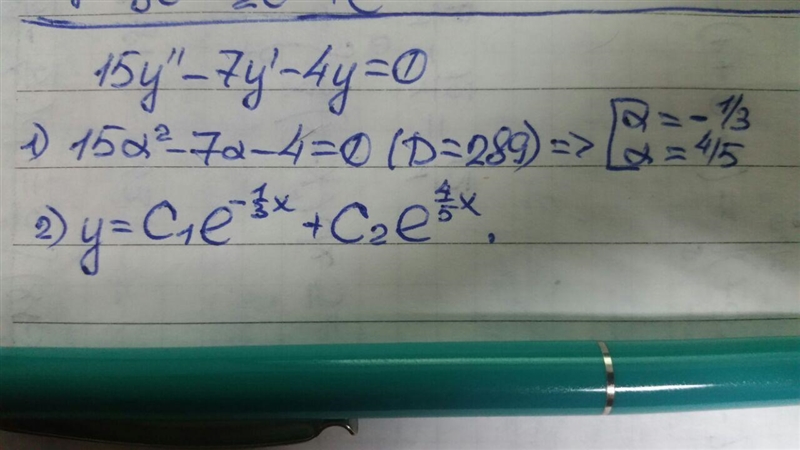 15y'' - 7y' - 4y = 0
1) 15α² - 7α - 4 = 0 (D = 289) => [α = -1/3
α = 4/5
2) y = C₁e^{-1/3 x} + C₂e^{4/5 x}.